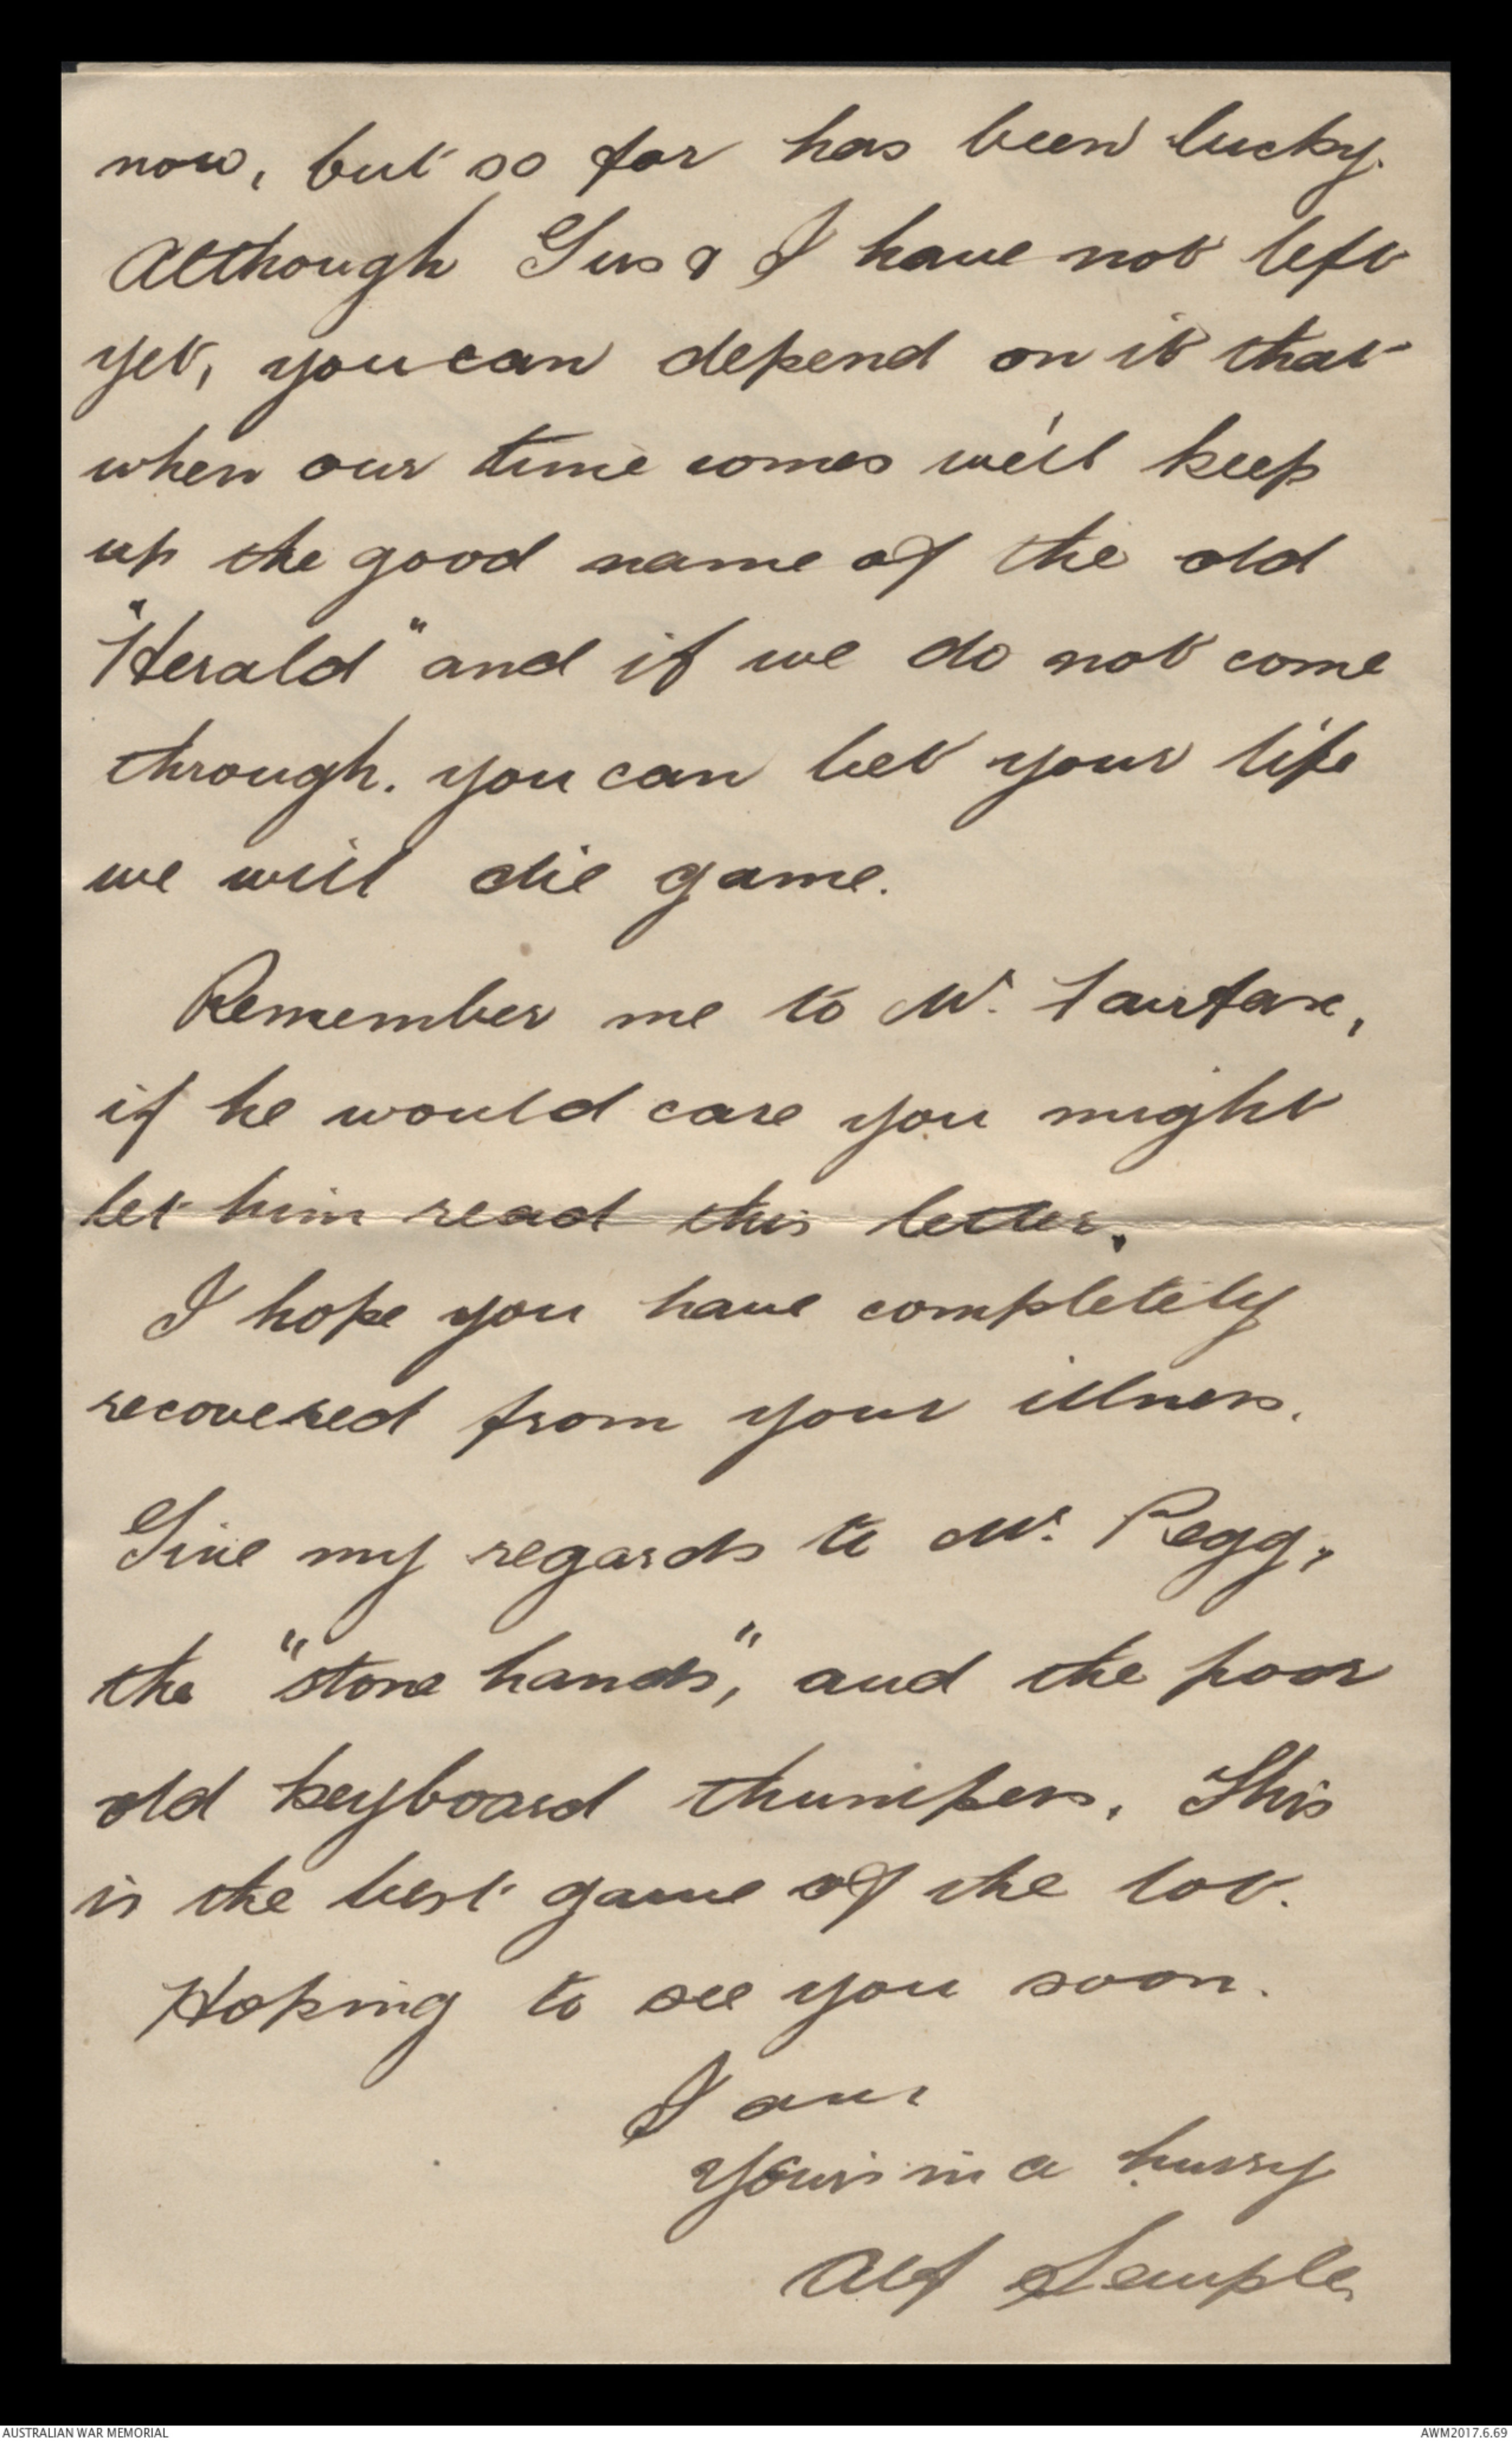 now, but so far has been lucky.
Although Gus & I have not left
yet, you can depend on it that
when our time comes we'll keep
up the good name of the old
"Herald" and if we do not come
through. you can bet your life
we will die game.
Remember me to Mr. Fairfax,
if he would care you might
let him read this letter.
I hope you have completely
recovered from your illness.
Give my regards to Mr. Pegg,
the "stone hands", and the poor
old keyboard thumpers. This
is the best game of the lot.
Hoping to see you soon.
I am
Yours in a hurry
Alf Semple
AUSTRALIAN WAR MEMORIAL
AWM2017.6.69